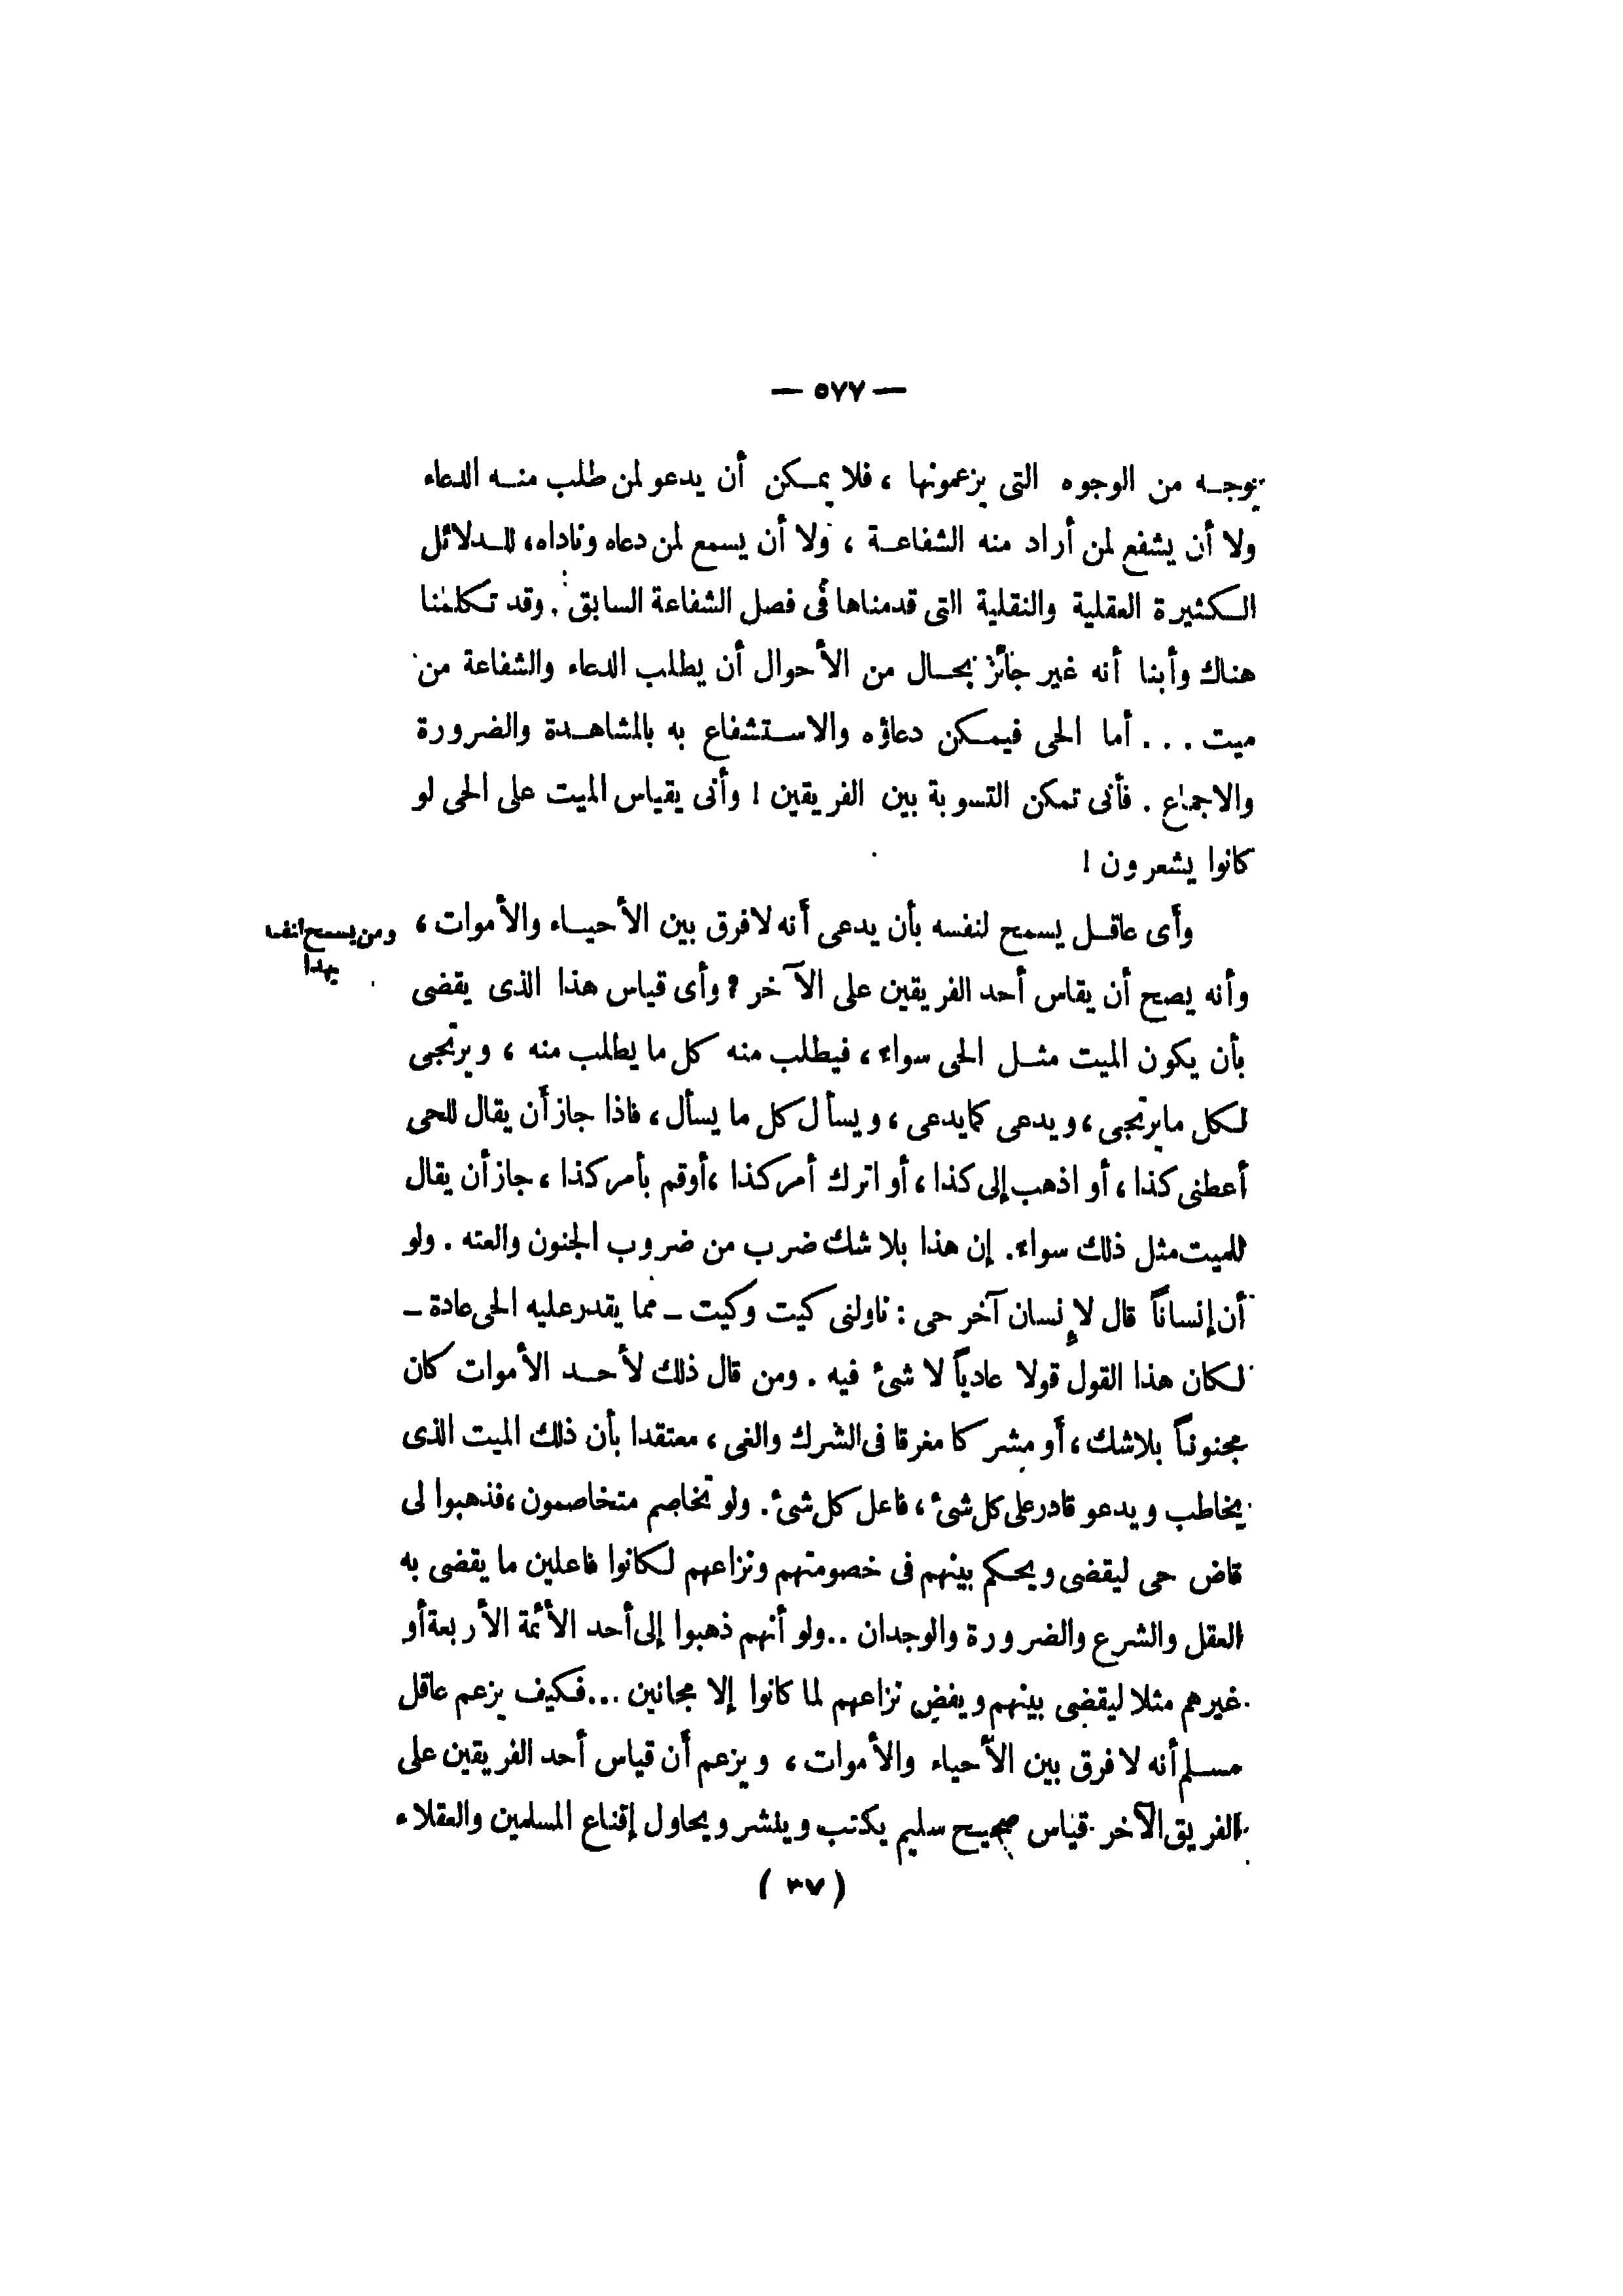 — ٥٧٧ —
بوجه من الوجوه التى يزعمونها ، فلا يمكن أن يدعو لمن طلب منه الدعاء
ولا أن يشفع لمن أراد منه الشفاعة ، ولا أن يسمع لمن دعاه وناداه، للدلائل
الكثيرة العقلية والنقلية التى قدمناها فى فصل الشفاعة السابق . وقد تكلمنا
هناك وأبنا أنه غير جائز بحال من الأحوال أن يطلب الدعاء والشفاعة من
ميت . . . أما الحى فيمكن دعاؤه والاستشفاع به بالمشاهدة والضرورة
والاجماع . فأنى تمكن التسوية بين الفريقين ! وأنى يقياس الميت على الحى لو
كانوا يشعرون !
وأى عاقل يسمح لنفسه بأن يدعى أنه لافرق بين الأحياء والأموات ،
ومن يسمح لنفسه
بهذا
وأنه يصح أن يقاس أحد الفريقين على الآخر ؟ وأى قياس هذا الذى يقضى
بأن يكون الميت مثل الحى سواء ، فيطلب منه كل ما يطلب منه ، ويرتجى
لكل مايرتجى ، ويدعى كمايدعى ، ويسأل كل ما يسأل ، فاذا جاز أن يقال للحى
أعطنى كذا ، أو اذهب إلى كذا ، أو اترك أمر كذا ،أوقم بأمر كذا ، جاز أن يقال
للميت مثل ذلك سواء. إن هذا بلا شك ضرب من ضروب الجنون والعته . ولو
أن إنساناً قال لإنسان آخر حى : ناولنى كيت وكيت ـ مما يقدر عليه الحى عادة ـ
لكان هذا القول قولا عادياً لا شئ فيه . ومن قال ذلك لأحد الأموات كان
مجنوناً بلاشك ، أو مشركا مغرقا فى الشرك والغى ، معتقدا بأن ذلك الميت الذى
يخاطب ويدعو قادر على كل شئ ، فاعل كل شئ. ولو تخاصم متخاصمون ،فذهبوا لى
قاض حى ليقضى ويحكم بينهم فى خصومتهم ونزاعهم لكانوا فاعلين ما يقضى به
العقل والشرع والضرورة والوجدان ..ولو أنهم ذهبوا إلى أحد الأئمة الأربعة أو
غيرهم مثلا ليقضى بينهم ويفض نزاعهم لما كانوا إلا مجانين ...فكيف يزعم عاقل
مسلم أنه لا فرق بين الأحياء والأموات ، ويزعم أن قياس أحد الفريقين على
الفريق الآخر قياس صحيح سليم يكتب وينشر ويحاول إقناع المسلمين والعقلاء
( ٣٧ )